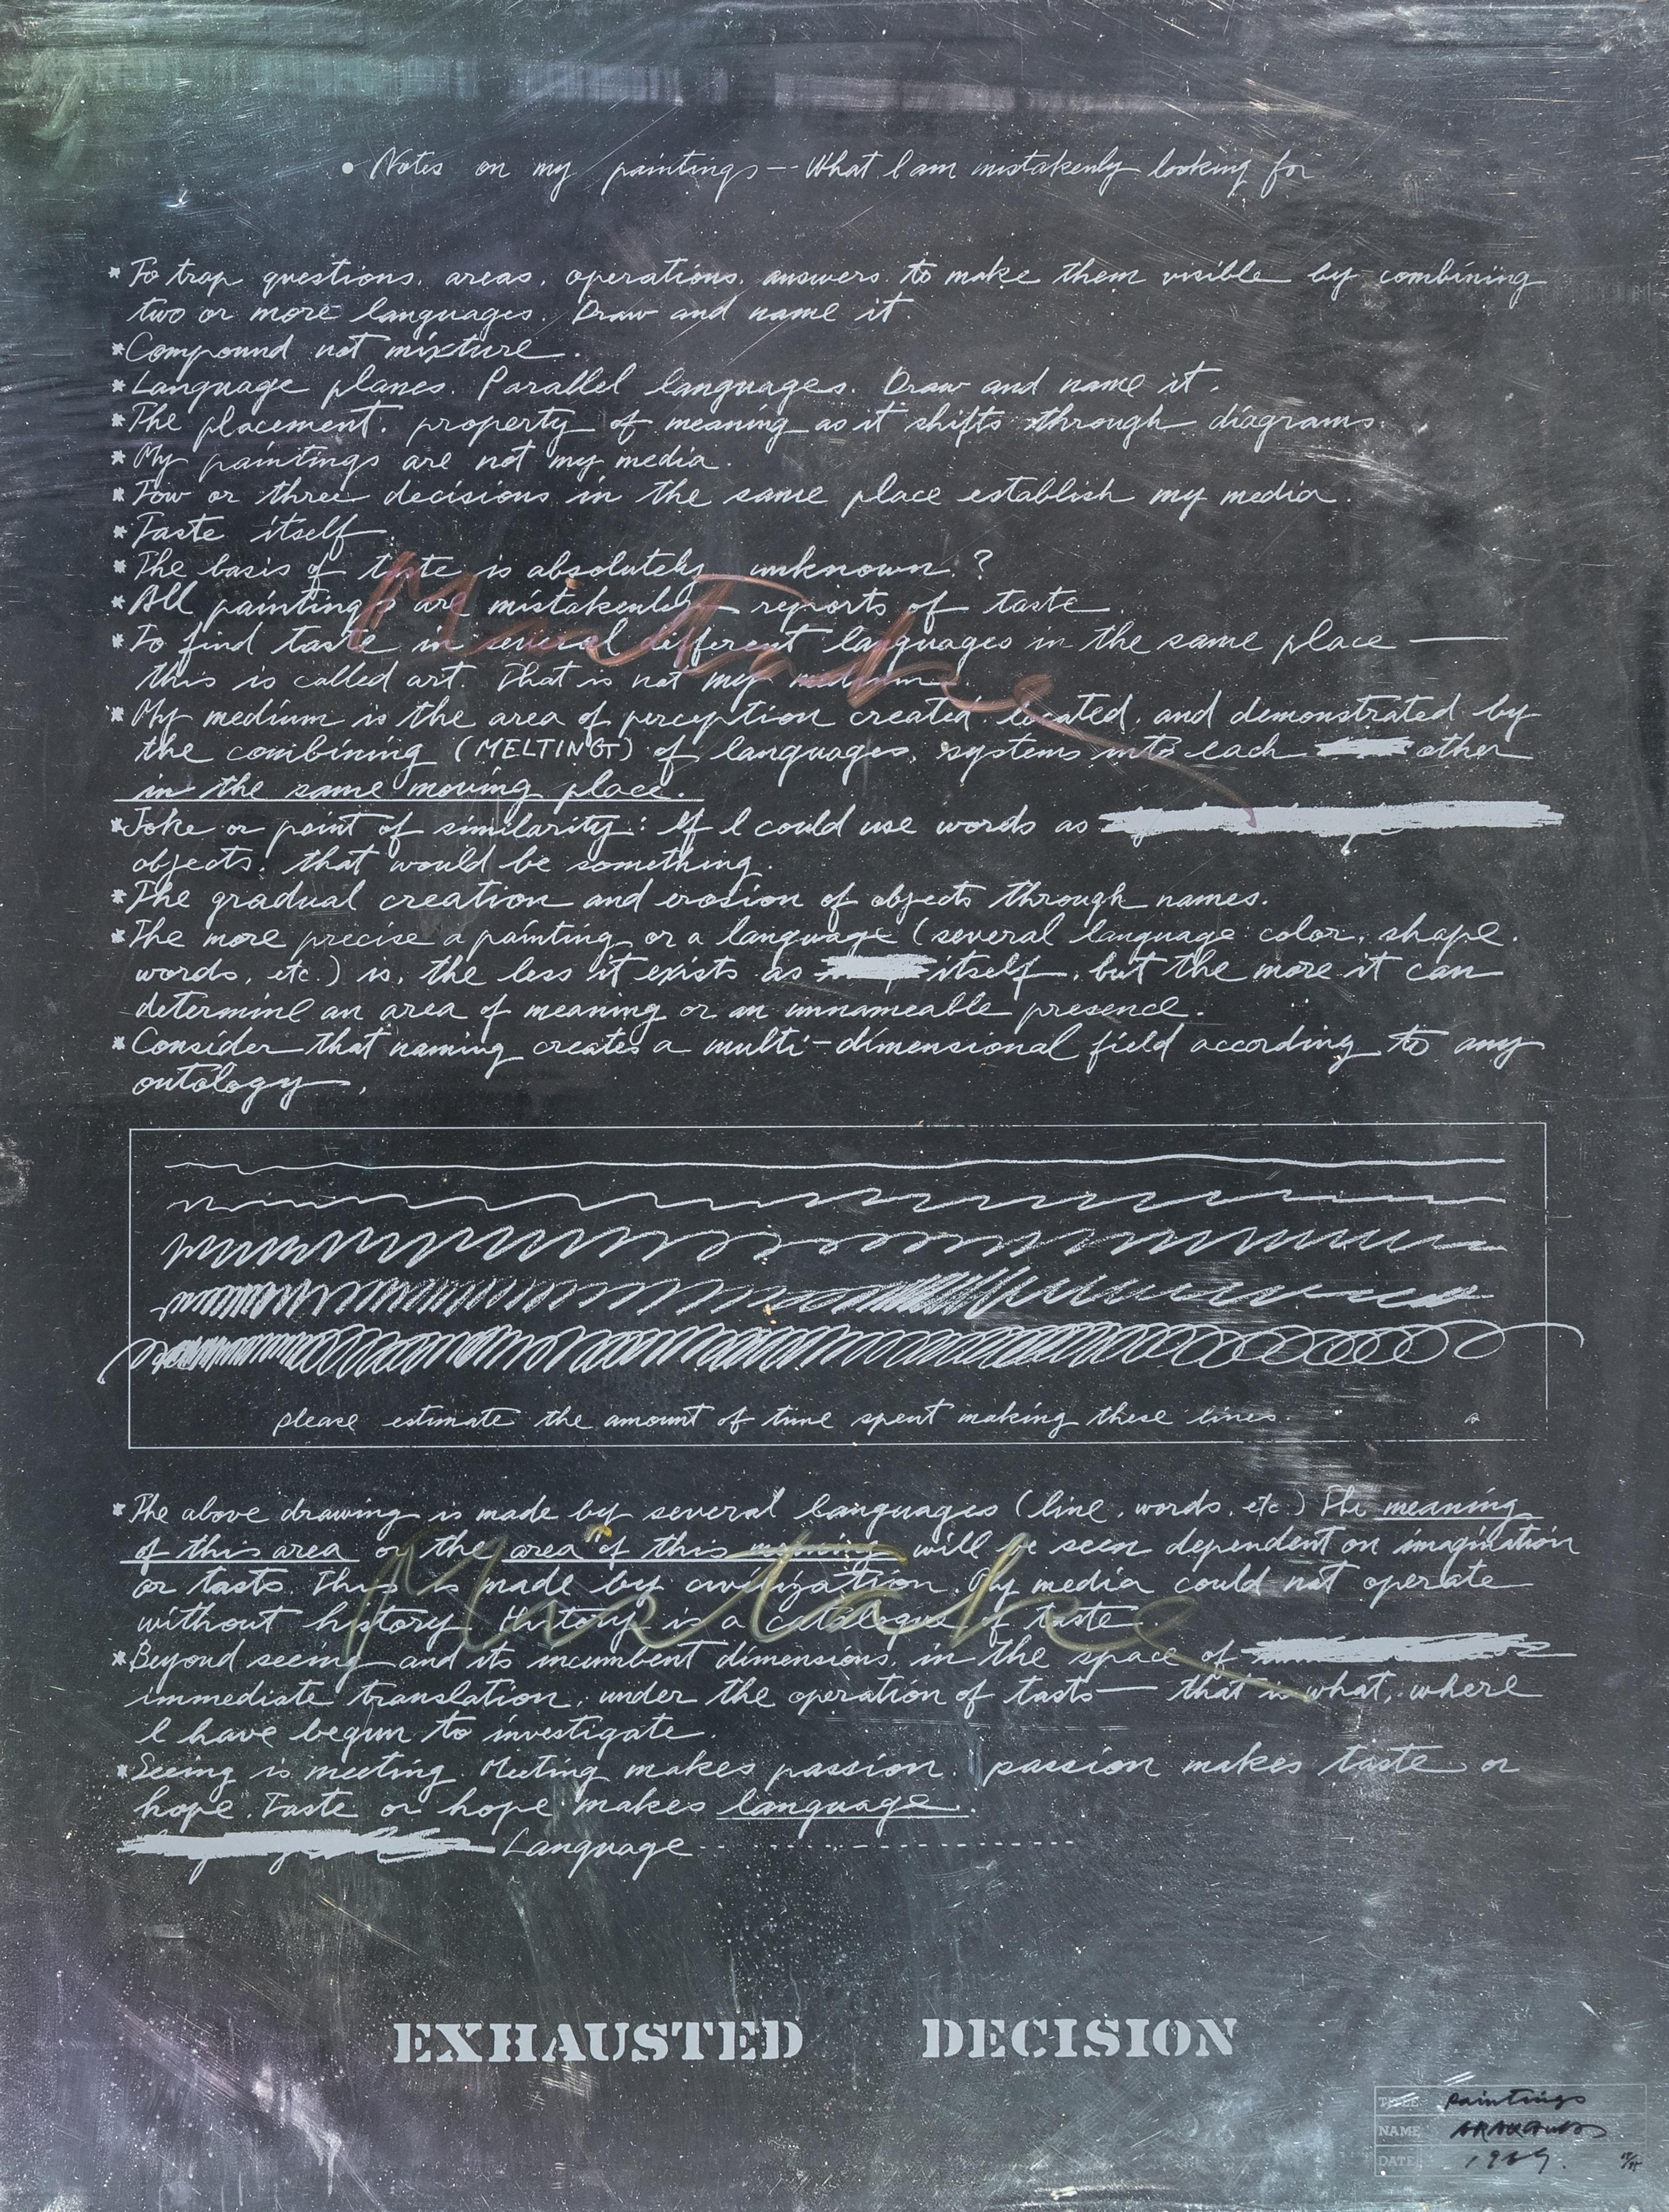 • Notes on my paintings -- What I am mistakenly looking for
* To trap questions. areas. operations. answers. to make them visible by combining
two or more languages. Draw and name it
* Compound not mixture.
* Language planes. Parallel languages. Draw and name it.
* The placement. property of meaning as it shifts through diagrams.
* My paintings are not my media.
* Tow or three decisions in the same place establish my media.
* Taste itself
* The basis of taste is absolutely unknown.?
* All paintings are mistakenly reports of taste.
* To find taste in several different languages in the same place —
this is called art. That is not my medium.
Mistake
* My medium is the area of perception created, located, and demonstrated by
the combining (MELTING) of languages, systems into each other
in the same moving place.
* Joke or point of similarity: If I could use words as
objects. that would be something.
* The gradual creation and erosion of objects through names.
* The more precise a painting or a language (several language: color, shape.
words, etc.) is, the less it exists as itself, but the more it can
determine an area of meaning or an unnameable presence.
* Consider that naming creates a multi-dimensional field according to any
ontology.
please estimate the amount of time spent making these lines.
* The above drawing is made by several languages (line, words, etc.) The meaning
of this area or the area of this meaning will be seen dependent on imagination
or tasts. This is made by civilization. My media could not operate
without history. History is a catalogue of taste.
Mistake
* Beyond seeing and its incumbent dimensions, in the space of
immediate translation, under the operation of tasts — that is what, where
I have begun to investigate.
* Seeing is meeting. Meeting makes passion. passion makes taste or
hope. Taste or hope makes language.
Language ---------------
EXHAUSTED DECISION
TITLE paintings
NAME ARAKAWA
DATE 1969.